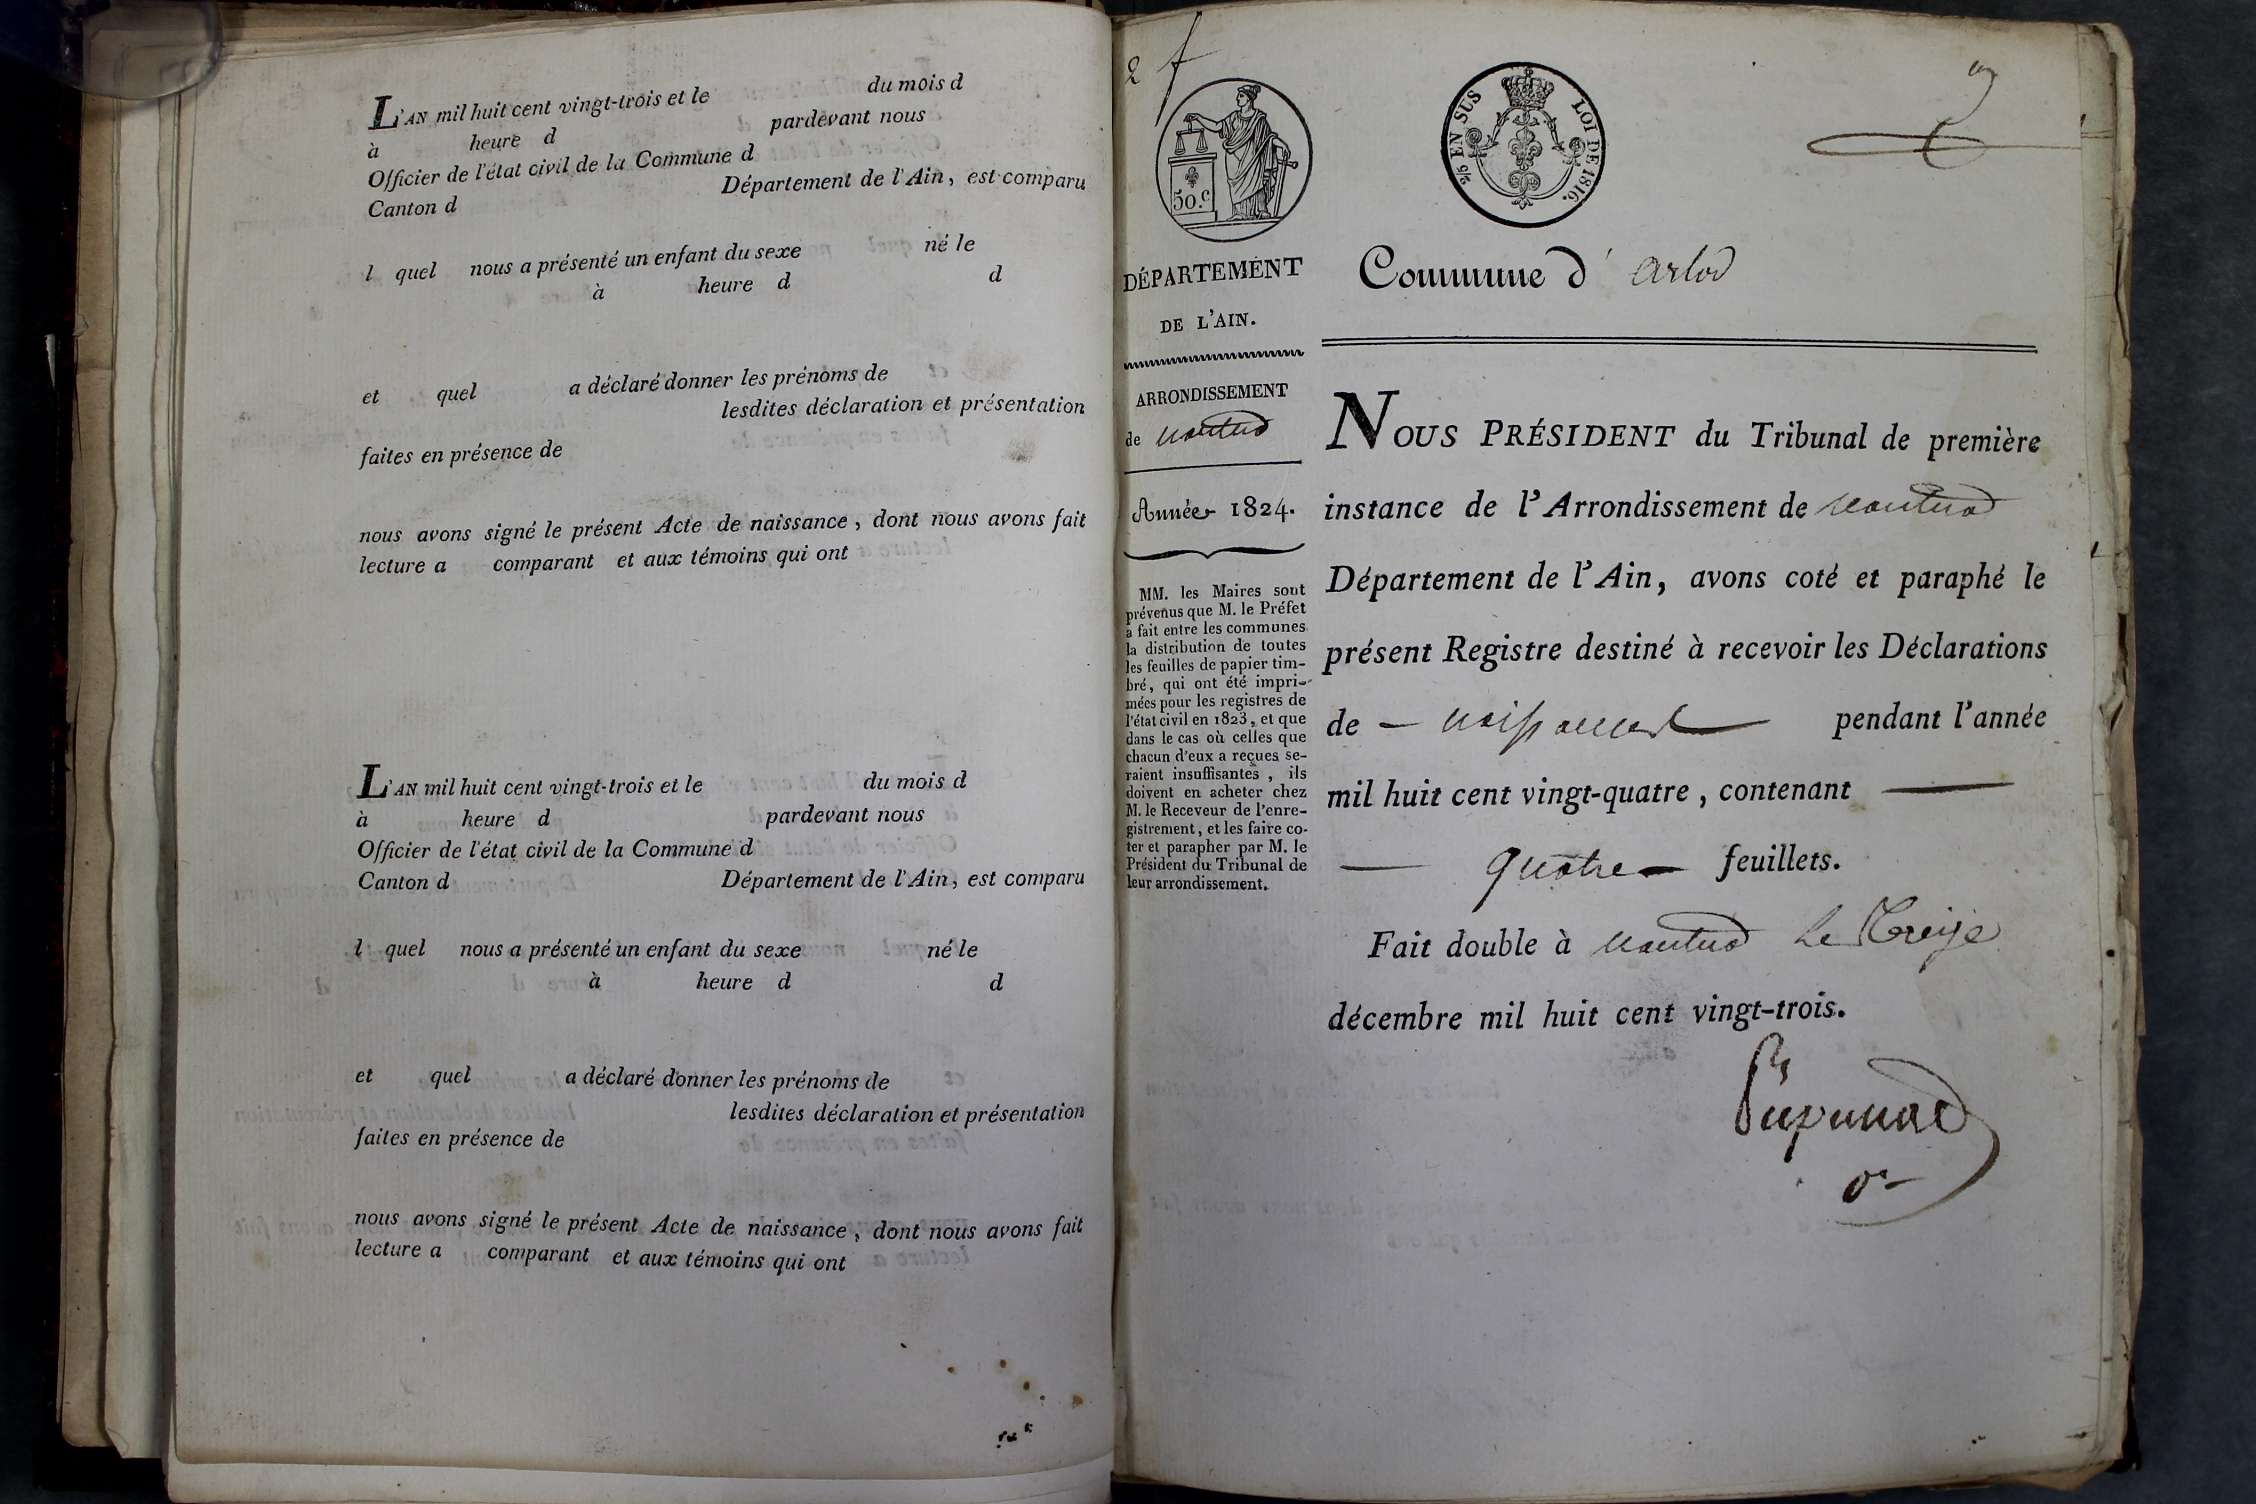 L'AN mil huit cent vingt-trois et le du mois d
à heure d pardevant nous
Officier de l'état civil de la Commune d
Canton d Département de l'Ain, est comparu
l quel nous a présenté un enfant du sexe né le
à heure d d
et quel a déclaré donner les prénoms de
lesdites déclaration et présentation
faites en présence de
nous avons signé le présent Acte de naissance, dont nous avons fait
lecture a comparant et aux témoins qui ont
L'AN mil huit cent vingt-trois et le du mois d
à heure d pardevant nous
Officier de l'état civil de la Commune d
Canton d Département de l'Ain, est comparu
l quel nous a présenté un enfant du sexe né le
à heure d d
et quel a déclaré donner les prénoms de
lesdites déclaration et présentation
faites en présence de
nous avons signé le présent Acte de naissance, dont nous avons fait
lecture a comparant et aux témoins qui ont
2 f
50.c
2/5 EN SUS LOI DE 1816.
DÉPARTEMENT
DE L'AIN.
ARRONDISSEMENT
de nantua
Année 1824.
MM. les Maires sont
prévenus que M. le Préfet
a fait entre les communes
la distribution de toutes
les feuilles de papier tim-
bré, qui ont été impri-
mées pour les registres de
l'état civil en 1823, et que
dans le cas où celles que
chacun d'eux a reçues se-
raient insuffisantes, ils
doivent en acheter chez
M. le Receveur de l'enre-
gistrement, et les faire co-
ter et parapher par M. le
Président du Tribunal de
leur arrondissement.
Commune d' arlod
NOUS PRÉSIDENT du Tribunal de première
instance de l'Arrondissement de nantua
Département de l'Ain, avons coté et paraphé le
présent Registre destiné à recevoir les Déclarations
de — naissances pendant l'année
mil huit cent vingt-quatre, contenant —
— quatre — feuillets.
Fait double à nantua le Treize
décembre mil huit cent vingt-trois.